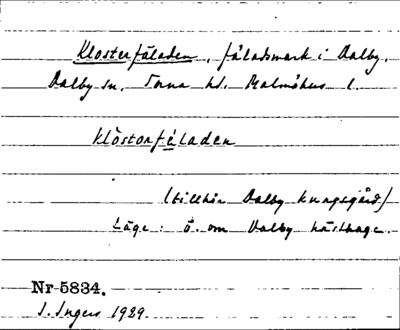 Klosterfäladen, fäladsmark i Dalby,
Dalby sn. Torna hd. Malmöhus l.
klöstorfäladen
(tillhör Dalby kungsgård)
Läge: ö. om Dalby hästhage.
Nr 5834.
I. Ingers 1929.